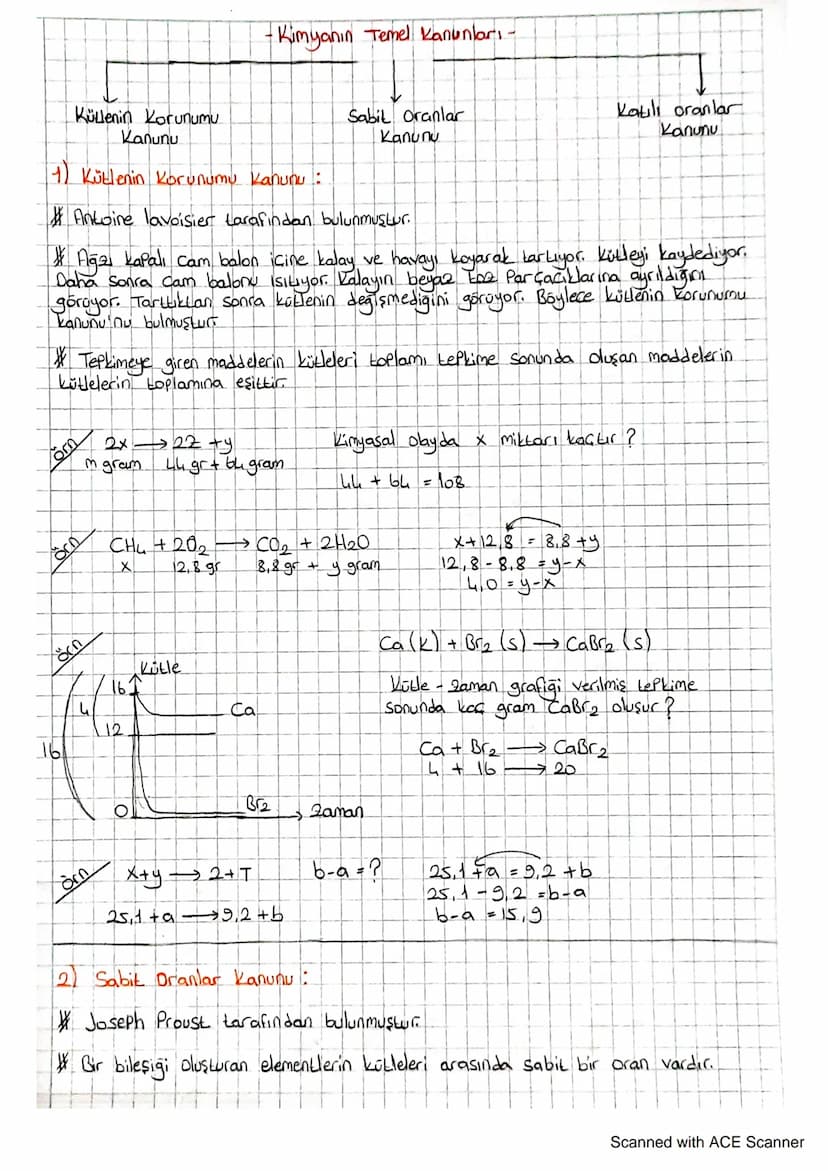 - Kimyanın Temel Kanunları -
Kütlenin Korunumu
Kanunu
Sabit Oranlar
Kanunu
Katlı oranlar
Kanunu
1) Kütlenin Korunumu Kanunu :
* Antoine lavoisier tarafından bulunmuştur.
* Ağzı kapalı cam balon içine kalay ve havayı koyarak tartıyor. Kütleyi kaydediyor.
Daha sonra cam balonu ısıtıyor. Kalayın beyaz toz Parçacıklarına ayrıldığını
görüyor. Tarttıktan sonra kütlenin değişmediğini görüyor. Böylece kütlenin korunumu
kanunu'nu bulmuştur.
* Tepkimeye giren maddelerin kütleleri toplamı tepkime sonunda oluşan maddelerin
kütlelerin toplamına eşittir.
örn
2x → 2Z + y
m gram 44 gr + 64 gram
Kimyasal olayda x miktarı kaçtır ?
44 + 64 = 108
örn
CH4 + 2O2 → CO2 + 2H2O
x 12,8 gr 8,8 gr + y gram
x + 12,8 = 8,8 + y
12,8 - 8,8 = y-x
4,0 = y-x
örn
Ca (k) + Br2 (s) → CaBr2 (s)
Kütle - Zaman grafiği verilmiş tepkime
sonunda kaç gram CaBr2 oluşur ?
Ca + Br2 → CaBr2
4 + 16 → 20
Kütle
16
4
Ca
12
16
0
Br2
Zaman
örn
x+y → Z+T
25,1 + a → 9,2 + b
b-a = ?
25,1 + a = 9,2 + b
25,1 - 9,2 = b-a
b-a = 15,9
2) Sabit Oranlar Kanunu :
* Joseph Proust tarafından bulunmuştur.
* Bir bileşiği oluşturan elementlerin kütleleri arasında sabit bir oran vardır.
Scanned with ACE Scanner